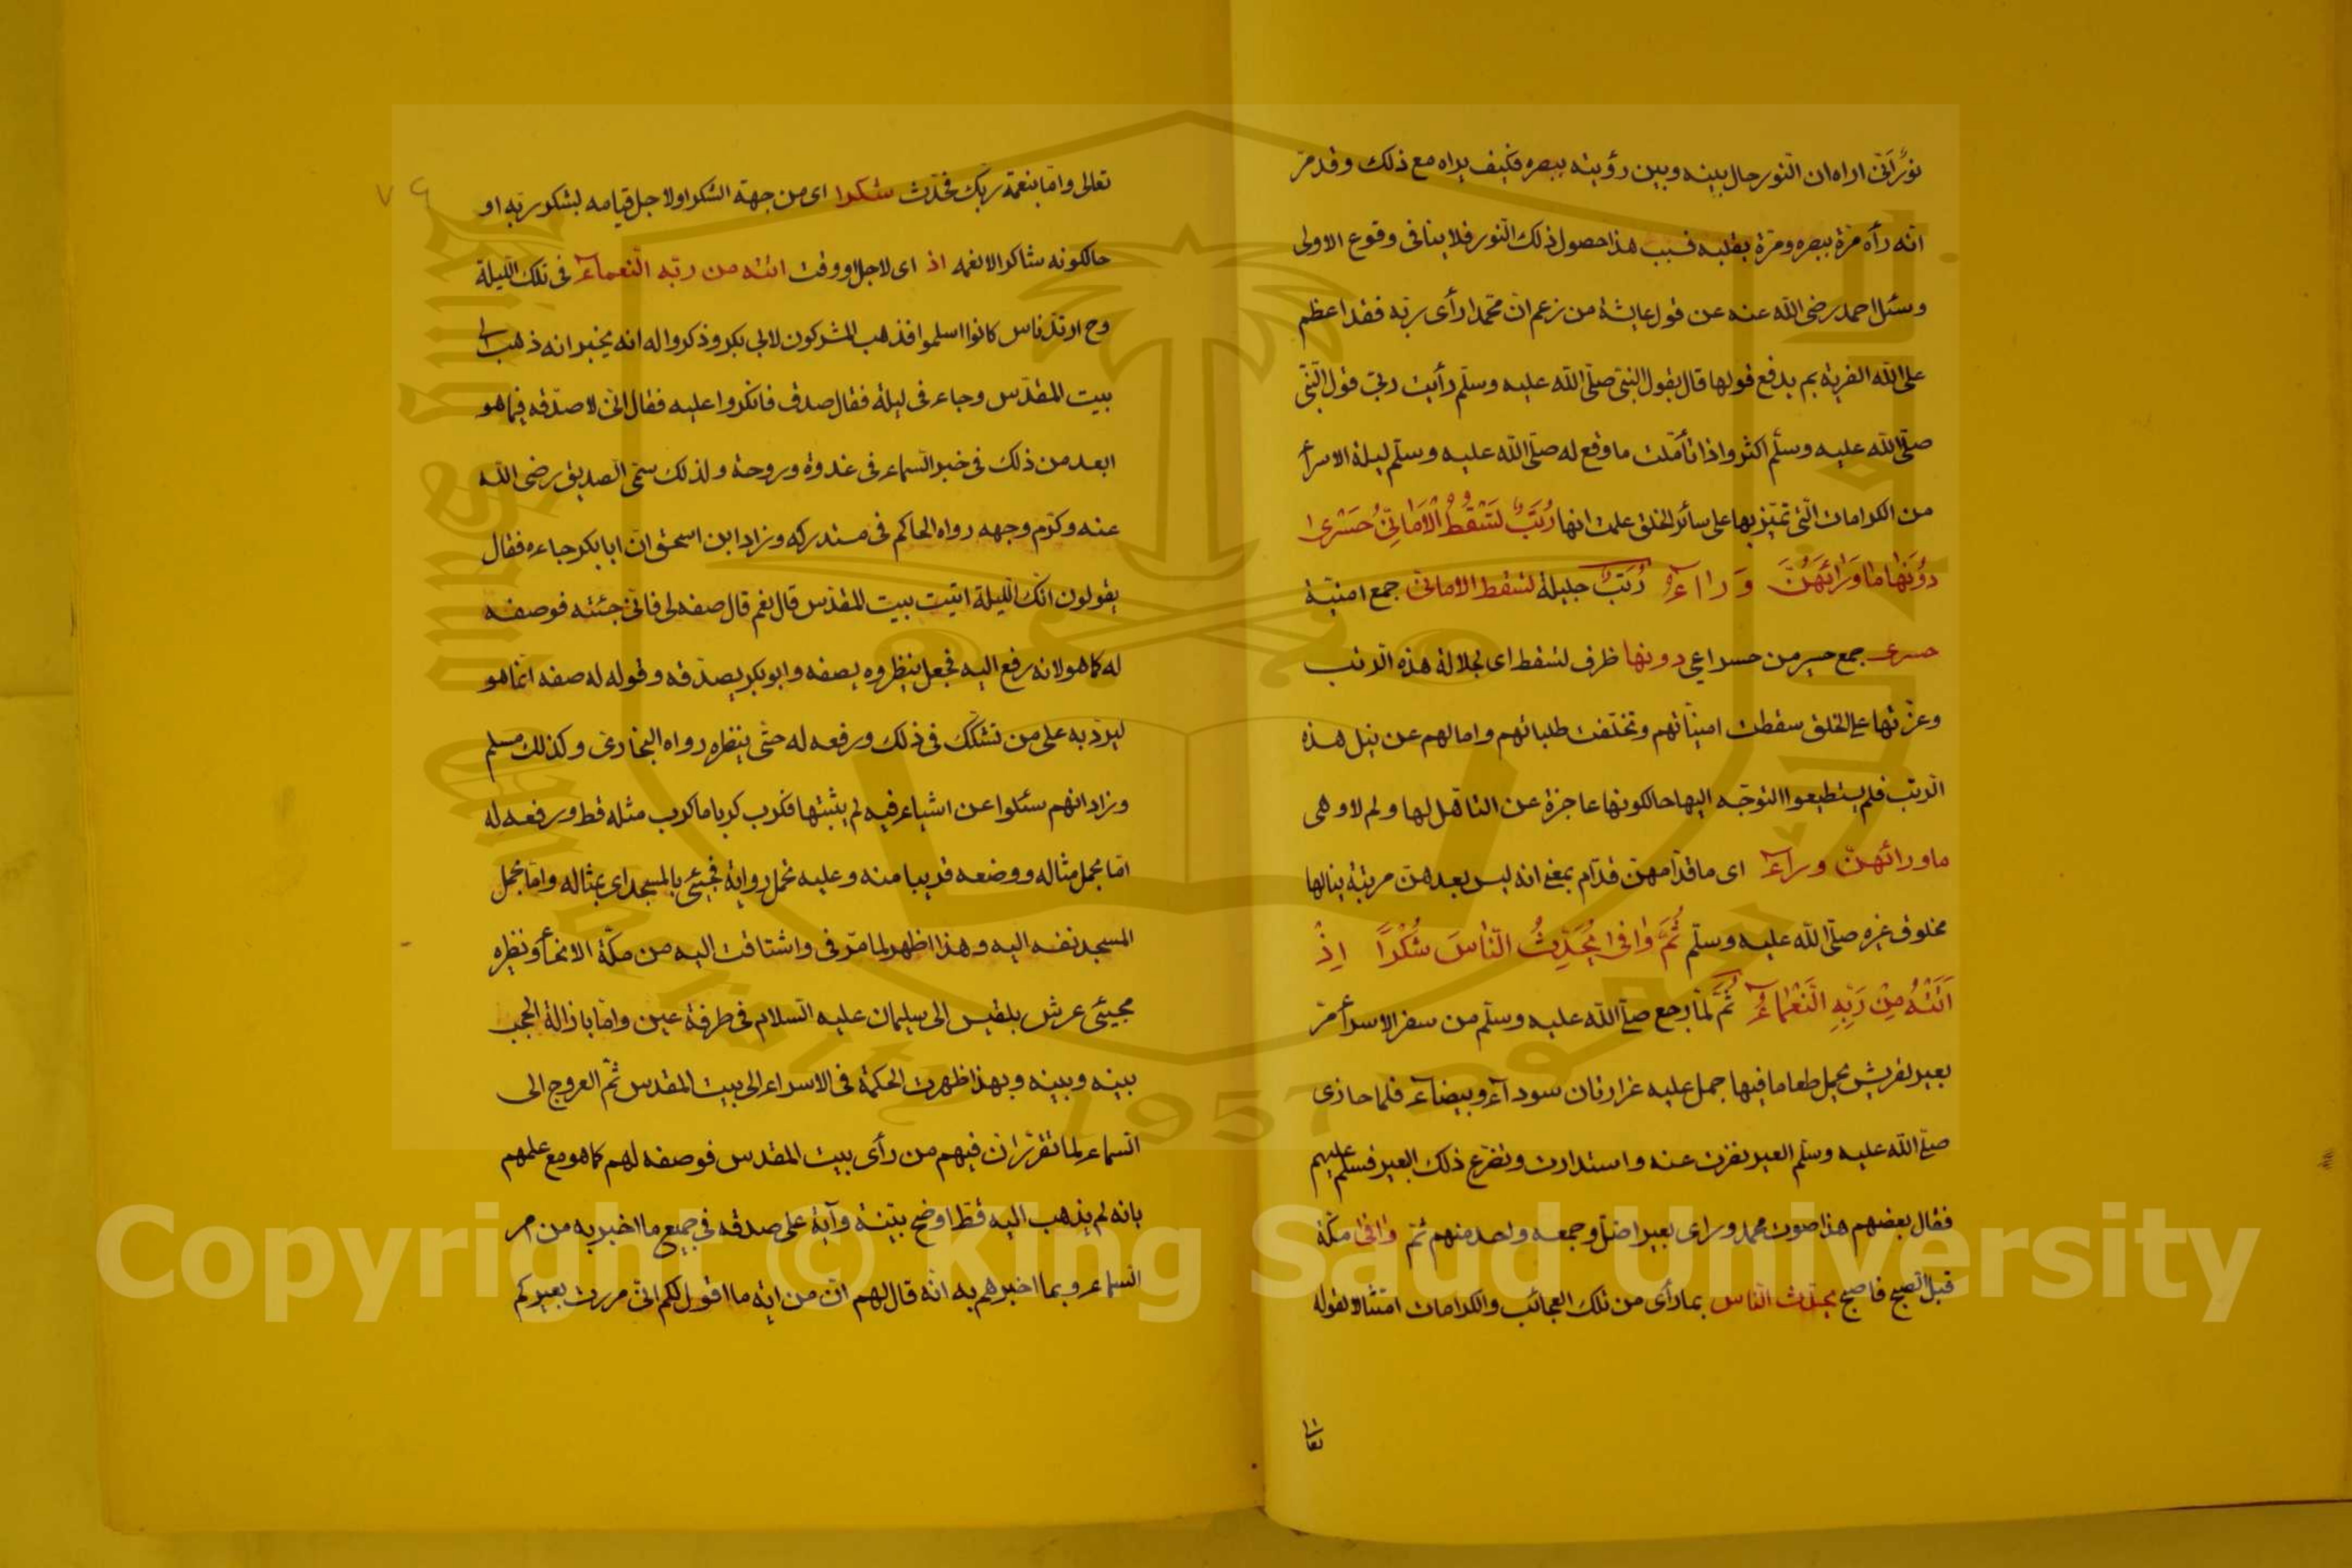 نورٌ اَنّى اراه ان النور حال بينه وبين رؤيته ببصره فكيف يراه مع ذلك وقد مرّ
انه رأه مرّة ببصره ومرّة بقلبه فسبب هذا حصول ذلك النور فلا ينافى وقوع الاولى
وسئل احمد رضى الله عنه عن قول عايشة من زعم انّ محمدا رأى ربّه فقد اعظم
على الله الفرية بم يدفع قولها قال بقول النبىّ صلّى الله عليه وسلّم رأيت ربى قول النبىّ
صلّى الله عليه وسلّم اكثر واذا تأمّلت ما وقع له صلّى الله عليه وسلّم ليلة الاسرآء
من الكرامات الّتى تميّز بها على سائر الخلق علمت انها رُتَبٌ تَسْقُطُ الْاَمَانِىُّ حَسْرٰى
دُوْنَهَا مَا وَرَآئَهُنَّ وَرَآءُ رُتَبٌ جليلة تسقط الامانى جمع امنيّة
حسرى جمع حسير من حسر اعيى دونها ظرف لتسقط اى لجلالة هذه الرتب
وعزّتها على الخلق سقطت امنيّاتهم وتخلّفت طلباتهم وامالهم عن نيل هذه
الرتب فلم يستطيعوا التوجّه اليها حالكونها عاجزة عن التاهّل لها ولم لا وهى
ماورائهنّ ورآء اى ما قدّامهنّ قدّام بمعنى انه ليس بعدهنّ مرتبة ينالها
مخلوق غيره صلّى الله عليه وسلّم ثُمَّ وَافٰى يُحَدِّثُ النَّاسَ شُكْرًا اِذْ
اَتَتْهُ مِنْ رَبِّهِ النَّعْمَآءُ ثُمَّ لمّا رجع صلّى الله عليه وسلّم من سفر الاسرآء مرّ
بعير لقريش تحمل طعاما فيها جمل عليه غرارتان سودآء وبيضآء فلما حاذى
صلّى الله عليه وسلّم العير نفرت عنه واستدارت وتضرع ذلك البعير فسلّم عليهم
فقال بعضهم هذا صوت محمد وراى بعيرا ضلّ وجمعه واحد منهم ثمّ وافى مكّة
قبل الصبح فاصبح يحدّث الناس بما رأى من تلك العجائب والكرامات امتثالا لقوله
تعالى
٧٩
تعالى وامّا بنعمة ربّك فحدّث شكرا اى من جهة الشكر او لاجل قيامه لشكر ربّه او
حالكونه شاكرا لانعمه اذ اى لاجل او وقت اتته من ربّه النعمآء فى تلك الليلة
وح ارتدّ ناس كانوا اسلموا فذهب المشركون لابى بكر وذكروا له انه يخبر انه ذهب الى
بيت المقدّس وجاء فى ليلة فقال صدق فانكروا عليه فقال انّى لاصدّقه فيما هو
ابعد من ذلك فى خبر السماء فى غدوة وروحة ولذلك سمّى الصديق رضى الله
عنه وكرّم وجهه رواه الحاكم فى مستدركه وزاد ابن اسحق انّ ابا بكر جاءه فقال
يقولون انّك الليلة اتيت بيت المقدّس قال نعم قال صفه لى فانّى جئته فوصفه
له كما هو لانه رفع اليه فجعل ينظره يصفه وابو بكر يصدّقه وقوله له صفه انّما هو
ليردّ به على من تشكّك فى ذلك ورفعه له حتّى ينظره رواه البخارى وكذلك مسلم
وزاد انهم سئلوا عن اشياء فيه لم يثبتها فكرب كربا ما كرب مثله قط ورفعه له
امّا بحمل مثاله ووضعه قريبا منه وعليه تحمل رواية فجيئ بالمسجد اى بمثاله وامّا بحمل
المسجد نفسه اليه وهذا اظهر لما مرّ فى واشتاقت اليه من مكّة الانحآء ونظيره
مجيئى عرش بلقيس الى سليمان عليه السلام فى طرفة عين وامّا بازالة الحجب
بينه وبينه وبهذا ظهرت الحكمة فى الاسراء الى بيت المقدس ثمّ العروج الى
السماء لما تقرّر ان فيهم من رأى بيت المقدس فوصفه لهم كما هو مع علمهم
بانه لم يذهب اليه قطّ اوضح بيّنة وآية على صدقه فى جميع ما اخبر به من مر
السماء وبما اخبرهم به انّه قال لهم انّ من اية ما اقول لكم انّى مررت بعيركم
King Saud University
1957
Copyright © King Saud University